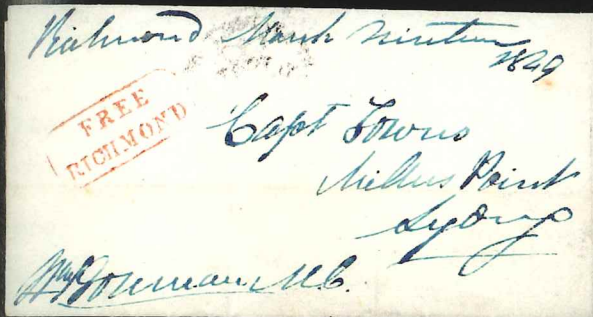 Richmond March Nineteen
1849
FREE
RICHMOND
Capt Towns
Millers Point
Sydney
Wm Bowman M.C.